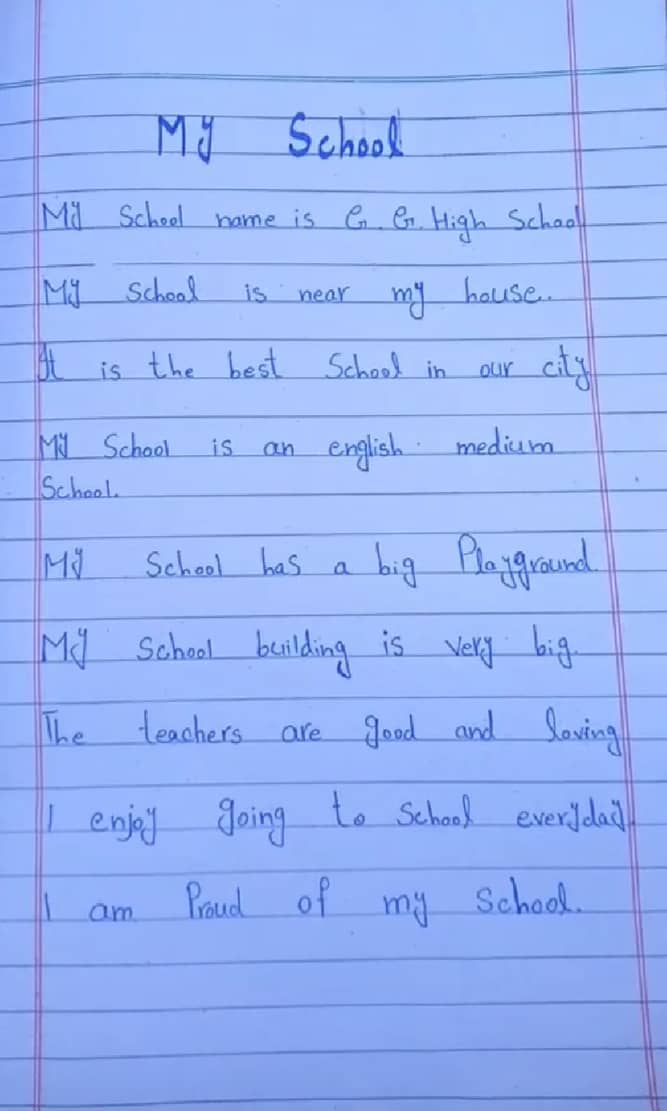 My School
My School name is G. G. High School
My School is near my house.
It is the best School in our city
My School is an english medium
School.
My School has a big Playground
My School building is very big.
The teachers are good and loving
I enjoy going to School everyday.
I am Proud of my School.